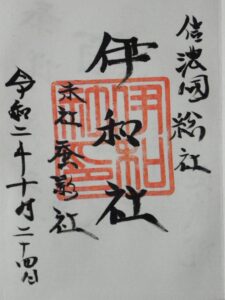 信濃國総社
伊和社
末社 蚕影社
令和二年十月二十四日
伊和
社印